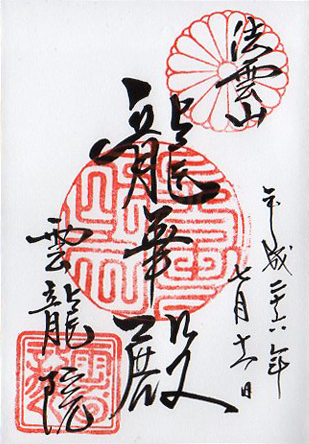 法雲山
平成二十六年
七月十一日
龍華殿
雲龍院